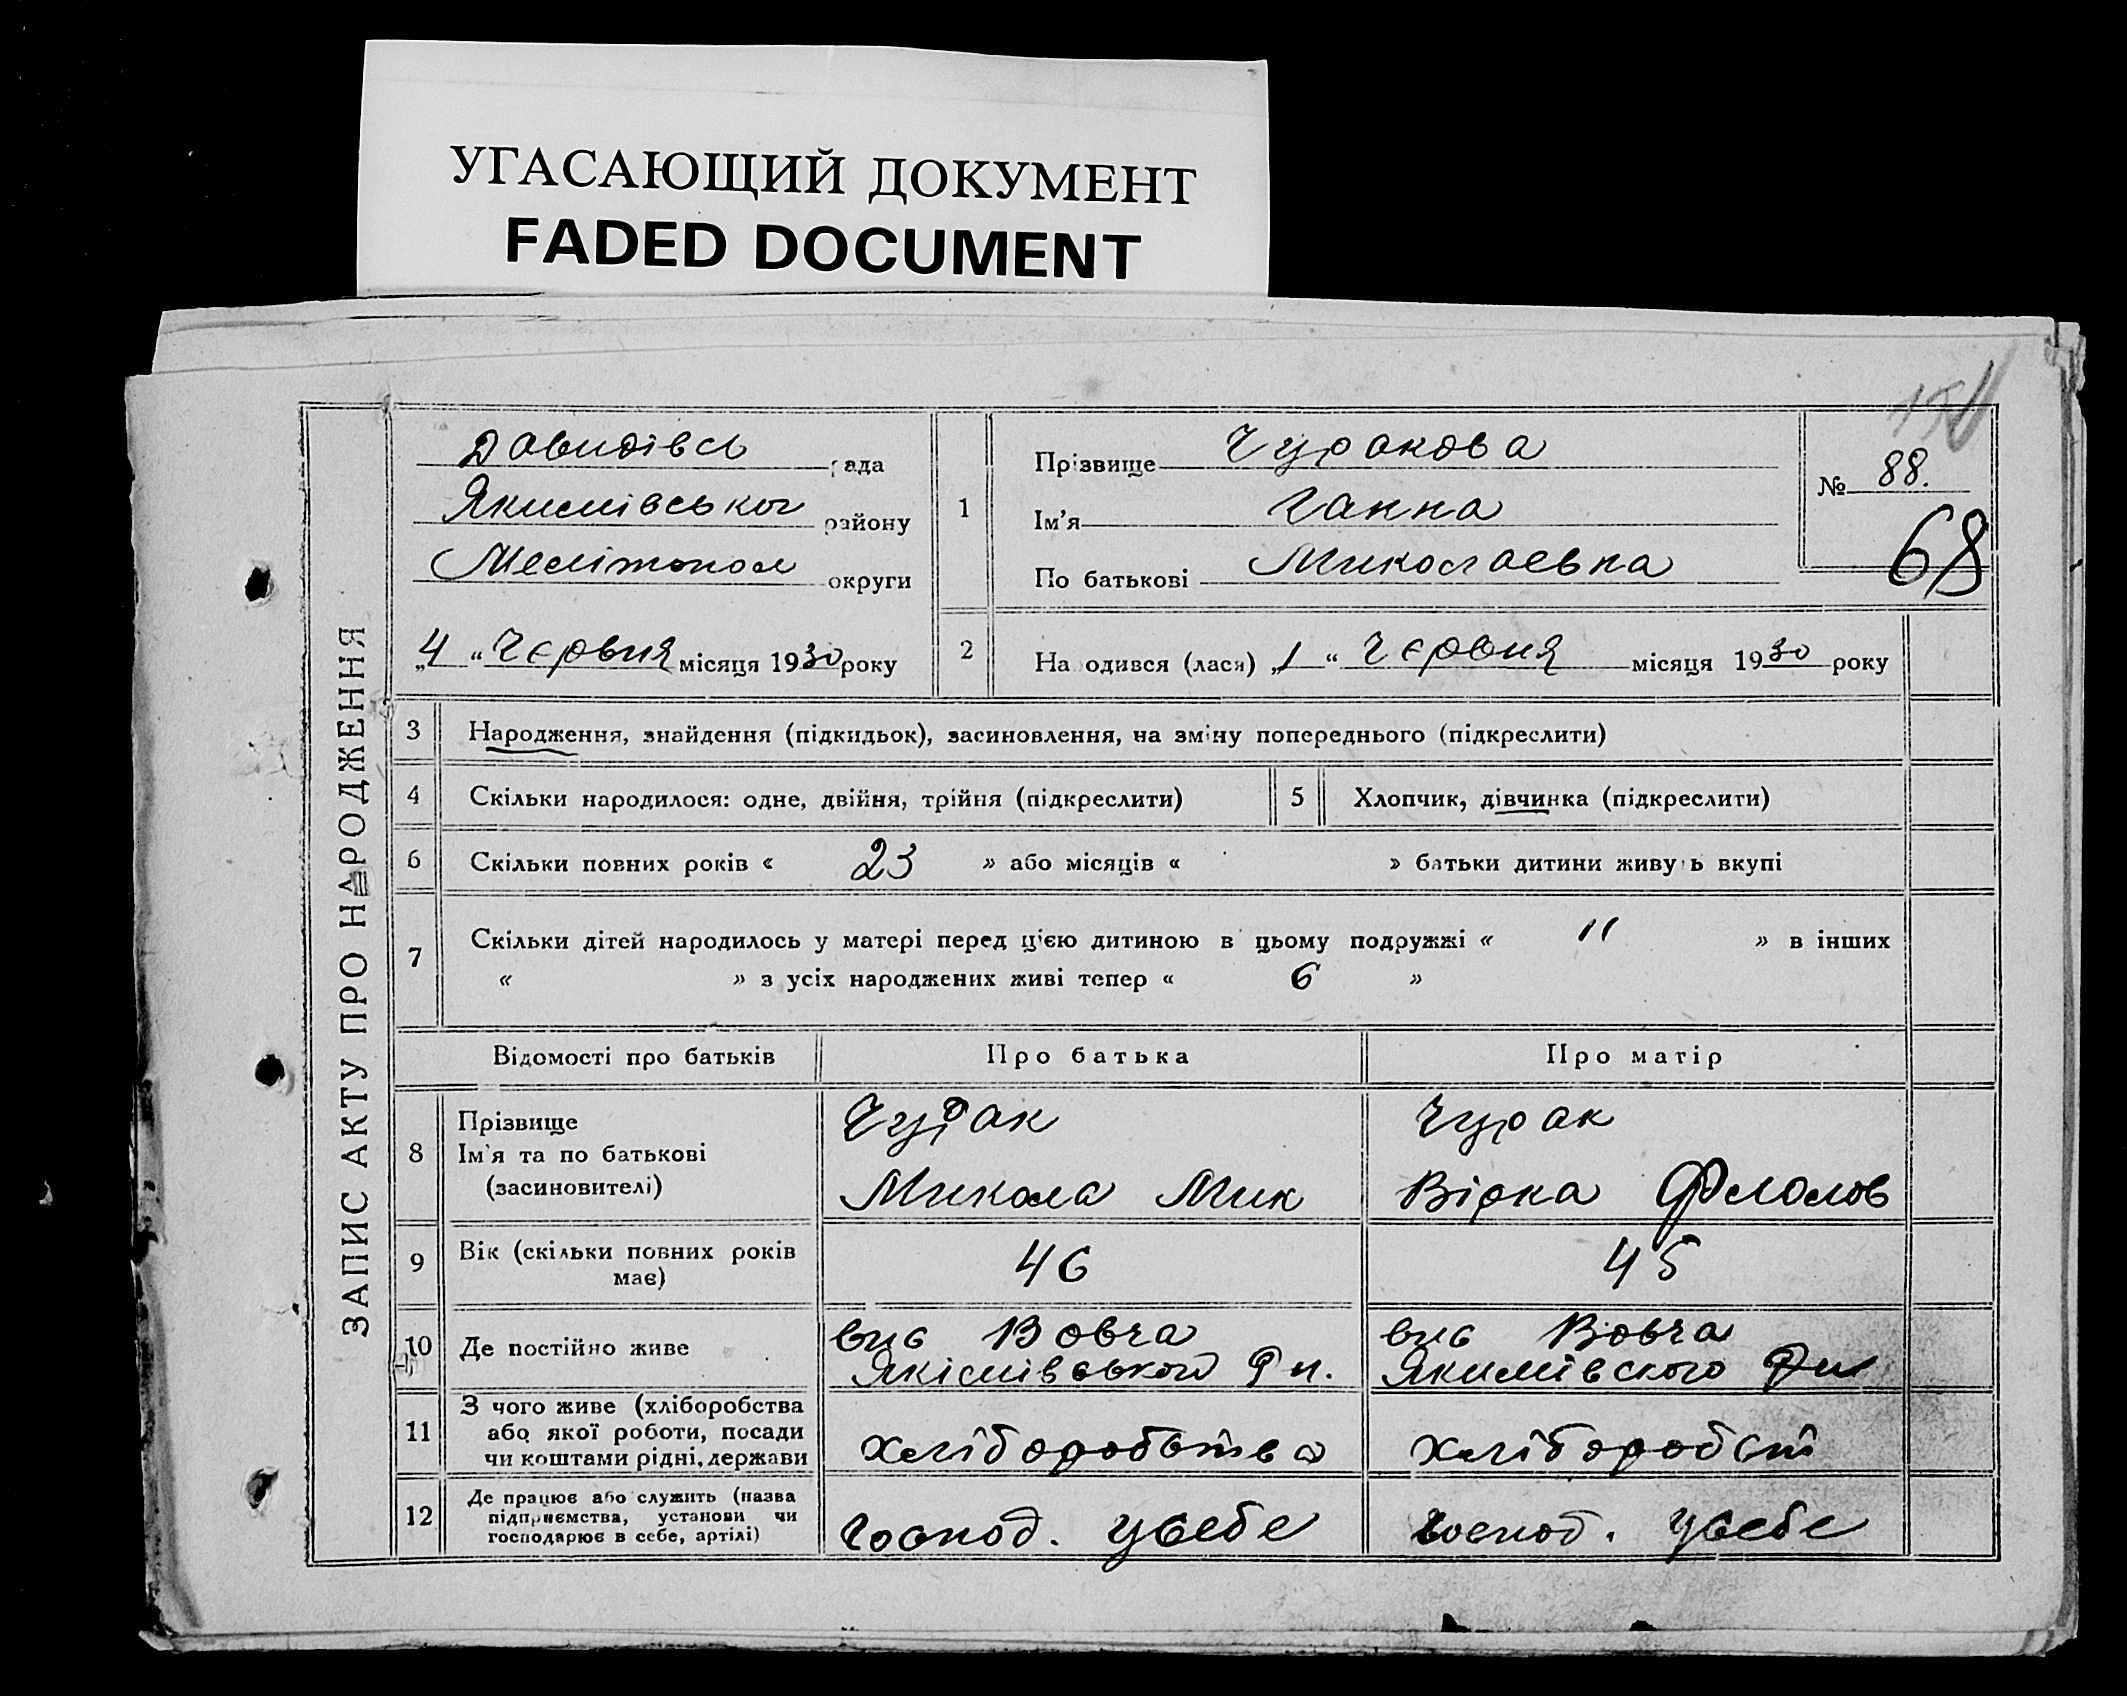 УГАСАЮЩИЙ ДОКУМЕНТ
FADED DOCUMENT
ЗАПИС АКТУ ПРО НАРОДЖЕННЯ
Давидівсь рада
Якимівської району
Мелітопол округи
„4“ Червня місяця 1930 року
1
Прізвище Чуракова
Ім'я Ганна
По батькові Миколаевна
№ 88.
68
2
На одився (лася) „1“ Червня місяця 1930 року
3 Народження, знайдення (підкидьок), засиновлення, на зміну попереднього (підкреслити)
4 Скільки народилося: одне, двійня, трійня (підкреслити)
5 Хлопчик, дівчинка (підкреслити)
6 Скільки повних років « 23 » або місяців « » батьки дитини живуть вкупі
7 Скільки дітей народилось у матері перед цією дитиною в цьому подружжі « 11 » в інших
« » з усіх народжених живі тепер « 6 »
Відомості про батьків Про батька Про матір
8
Прізвище
Ім'я та по батькові
(засиновителі)
Чурак
Микола Мик
Чурак
Вірка
9
Вік (скільки повних років
має)
46
45
10 Де постійно живе
вис Вовча
Якімівського Рн.
вис Вовча
Якимівского Рн
11
З чого живе (хліборобства
або якої роботи, посади
чи коштами рідні, держави
хліборобства
хліборобст
12
Де працює або служить (назва
підприємства, установи чи
господарює в себе, артілі)
господ. усебе
господ. усебе